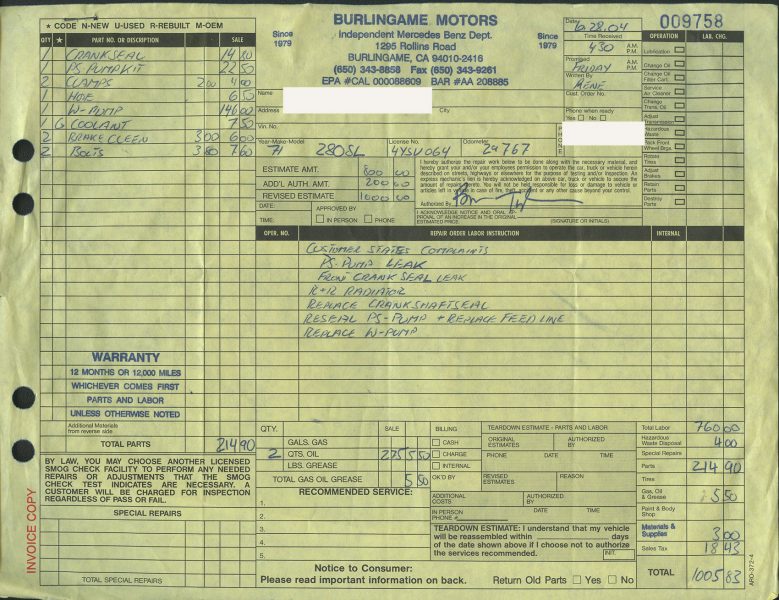 ★ CODE N-NEW U-USED R-REBUILT M-OEM
QTY ★ PART NO. OR DESCRIPTION SALE
1 CRANKSEAL 14 80
1 PS PUMPKIT 22 50
2 CLAMPS 2 00 4 00
1 HOSE 6 50
1 W-PUMP 146 00
1 G COOLANT 7 50
2 BRAKECLEEN 3 00 6 00
2 BOLTS 3 80 7 60
WARRANTY
12 MONTHS OR 12,000 MILES
WHICHEVER COMES FIRST
PARTS AND LABOR
UNLESS OTHERWISE NOTED
Additional Materials
from reverse side.
TOTAL PARTS 214 90
BY LAW, YOU MAY CHOOSE ANOTHER LICENSED
SMOG CHECK FACILITY TO PERFORM ANY NEEDED
REPAIRS OR ADJUSTMENTS THAT THE SMOG
CHECK TEST INDICATES ARE NECESSARY. A
CUSTOMER WILL BE CHARGED FOR INSPECTION
REGARDLESS OF PASS OR FAIL.
SPECIAL REPAIRS
TOTAL SPECIAL REPAIRS
INVOICE COPY
Since
1979
BURLINGAME MOTORS
Independent Mercedes Benz Dept.
1295 Rollins Road
BURLINGAME, CA 94010-2416
(650) 343-8858 Fax (650) 343-9261
EPA #CAL 000088609 BAR #AA 208885
Since
1979
Name
Address City
Vin. No.
Year-Make-Model 71 280SL License No. 4YSV064 Odometer
ESTIMATE AMT. 800 00
ADD'L AUTH. AMT. 200 00
REVISED ESTIMATE 1000 00
DATE: APPROVED BY
TIME: IN PERSON PHONE
Date 6.28.04
Time Received 430 A.M. P.M.
Promised FRIDAY A.M. P.M.
Written By RENE
Cust. Order No.
Phone when ready
Yes No
I hereby authorize the repair work below to be done along with the necessary material, and
hereby grant you and/or your employees permission to operate the car, truck or vehicle herein
described on streets, highways or elsewhere for the purpose of testing and/or inspection. An
express mechanic's lien is hereby acknowledged on above car, truck or vehicle to secure the
amount of repairs thereto. You will not be held responsible for loss or damage to vehicle or
articles left in vehicle in case of fire, theft, accident or any other cause beyond your control.
Authorized By
I ACKNOWLEDGE NOTICE AND ORAL AP-
PROVAL OF AN INCREASE IN THE ORIGINAL
ESTIMATED PRICE. (SIGNATURE OR INITIALS)
009758
OPERATION LAB. CHG.
Lubrication
Change Oil
Change Oil
Filter Cart.
Service
Air Cleaner
Change
Trans. Oil
Adjust
Transmission
Hazardous
Waste
Pack Front
Wheel Brgs.
Rotate
Tires
Adjust
Brakes
Retain
Parts
Destroy
Parts
OPER. NO. REPAIR ORDER LABOR INSTRUCTION INTERNAL
CUSTOMER STATES COMPLAINTS
PS-PUMP LEAK
FRONT CRANKSEAL LEAK
R+R RADIATOR
REPLACE CRANKSHAFTSEAL
RESEAL PS-PUMP + REPLACE FEED LINE
REPLACE W-PUMP
QTY. SALE
GALS. GAS
2 QTS. OIL 2 75 5 50
LBS. GREASE
TOTAL GAS OIL GREASE 5 50
RECOMMENDED SERVICE:
1.
2.
3.
4.
5.
BILLING
CASH
CHARGE
INTERNAL
OK'D BY
TEARDOWN ESTIMATE - PARTS AND LABOR
ORIGINAL ESTIMATES AUTHORIZED BY
PHONE DATE TIME
REVISED ESTIMATES REASON
ADDITIONAL COSTS AUTHORIZED BY
IN PERSON
PHONE # DATE TIME
TEARDOWN ESTIMATE: I understand that my vehicle
will be reassembled within days
of the date shown above if I choose not to authorize
the services recommended. INIT.
Notice to Consumer:
Please read important information on back.
Return Old Parts Yes No
Total Labor 760 00
Hazardous
Waste Disposal 4 00
Special Repairs
Parts 214 90
Tires
Gas, Oil
& Grease 5 50
Paint & Body
Shop
Materials &
Supplies 3 00
Sales Tax 18 43
TOTAL 1005 83
ARO-372-4